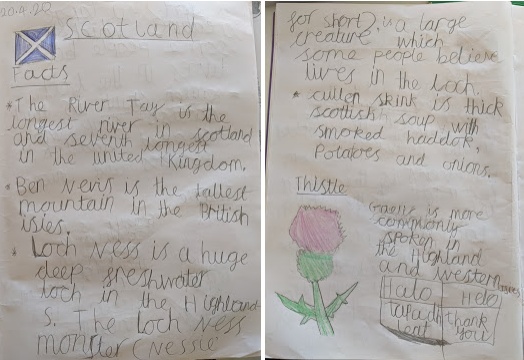 20.4.20
Scotland
Facts
* The River Tay is the
longest river in scotland
and seventh longest
in the united Kingdom.
* Ben Nevis is the tallest
mountain in the British
isles.
* Loch Ness is a huge
deep freshwater
loch in the Highland
s. The loch Ness
monster (Nessie
for short) is a large
creature which
some people believe
lives in the loch.
* cullen skink is thick
scottish soup with
smoked haddok,
potatoes and onions.
Thistle
is more
commonly
spoken in
the Highland
and western isles
Halo Helo
tapadh leat thank you